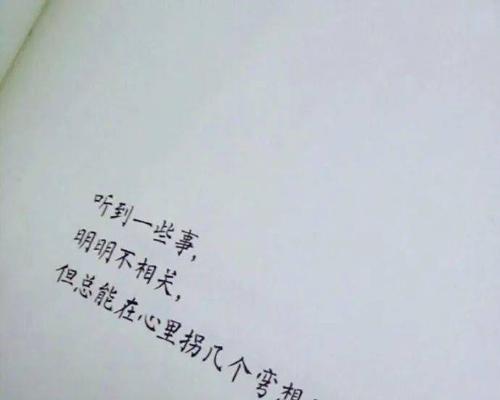 听到一些事，
明明不相关，
但总能在心里拐几个弯想